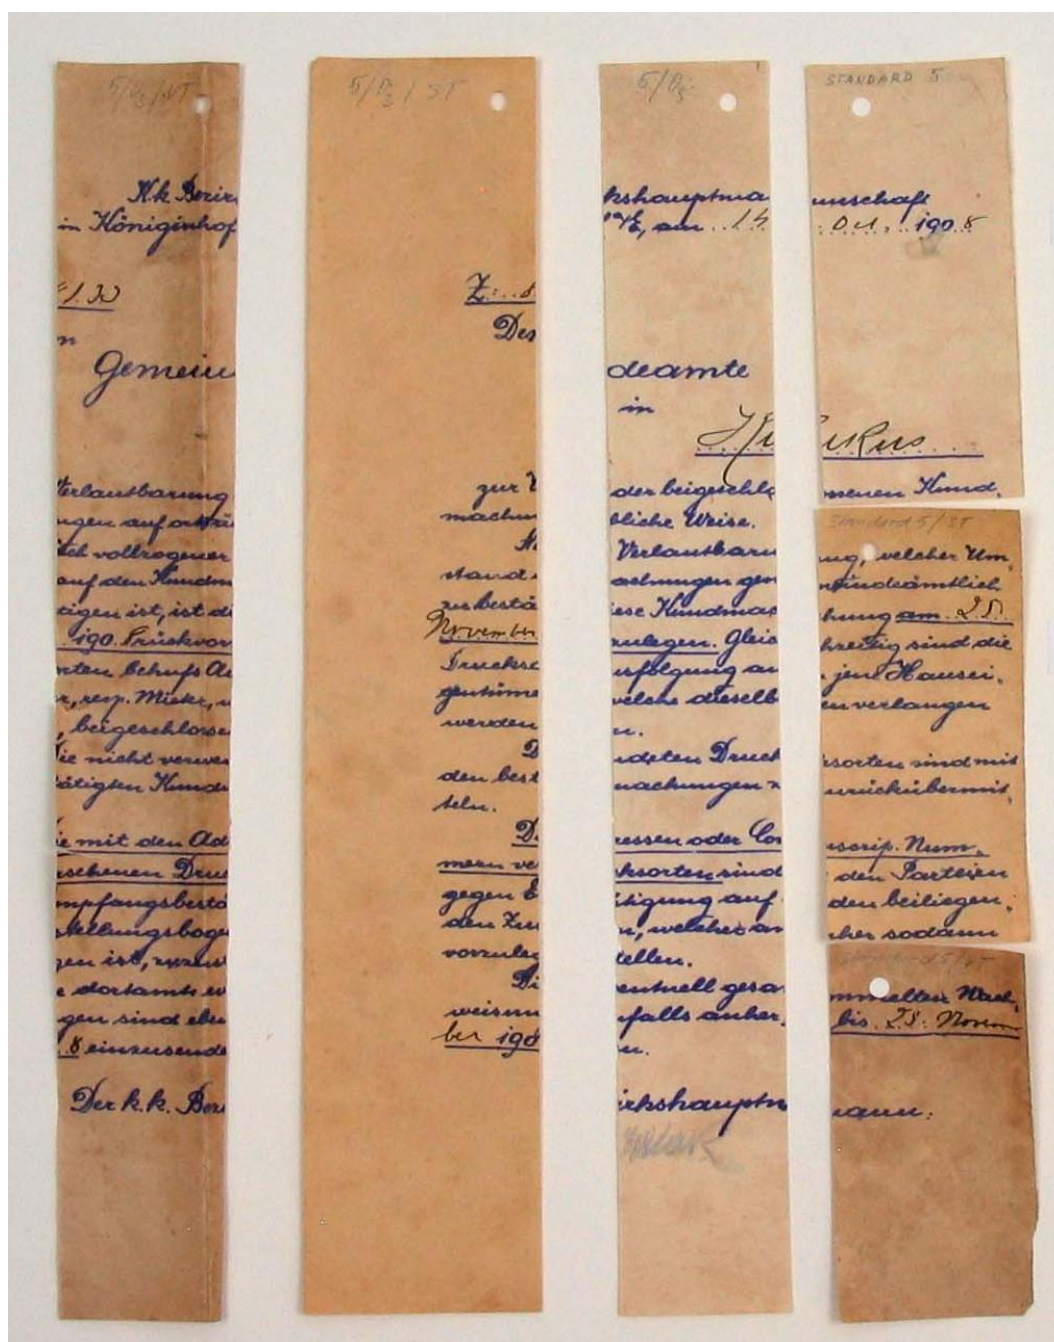 5/D3/NT
K.k. Bezir
in Königinhof
1.30
n
Gemein
Verlautbarung
ngen auf ortsü
ich vollzogener
auf den Kundm
tigen ist, ist di
190. Prückvor
orten behufs Au
r, resp. Mieter, w
, beigeschlosse
ie nicht verwe
tätigten Kund
ie mit den Ad
rsehenen Druc
mpfangsbestä
stellungsboge
gen ist, zuzus
e dortamts ev
gen sind ebe
8 einzusende
Der k.k. Bez
5/D3/ST
Z: 8
Des
zur V
machu
N
stand
zu bestä
November
Drucks
gentüme
werden
D
den best
teln.
D
mern ve
gegen E
den Zu
vorzuleg
Di
weisun
ber 190
5/D5
kshauptma
a/E, am 14
deamte
in
Ku
der beigeschlo
bliche Weise.
Verlautbaru
achungen gem
iese Kundmac
zulegen. Gleic
usfolgung an
welche dieselb
n.
ndeten Druck
machungen z
ressen oder Con
ksorten sind
tigung auf
n, welcher an
tellen.
entuell gesa
falls anher
n.
irkshauptm
STANDARD 5
nnschaft
Oct. 1908
kus
ossenen Kund,
Standard 5/ST
ng, welcher Um,
meindeämtlich
hung am 28.
hzeitig sind die
jene Hausei,
en verlangen
ksorten sind mit
urückübermit,
nscrip. Num,
den Parteien
den beiliegen,
cher sodann
Standard 5/NT
mmelten Nach,
bis 28. Novem
mann: